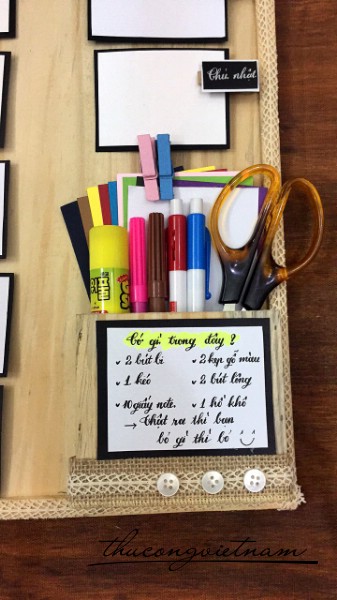 Chủ nhật
Có gì trong đây ?
2 bút bi
2 kẹp gỗ màu
1 kéo
2 bút lông
10 giấy note.
1 hồ khô
→ Thật ra thì bạn
bỏ gì thì bỏ
thucongvietnam